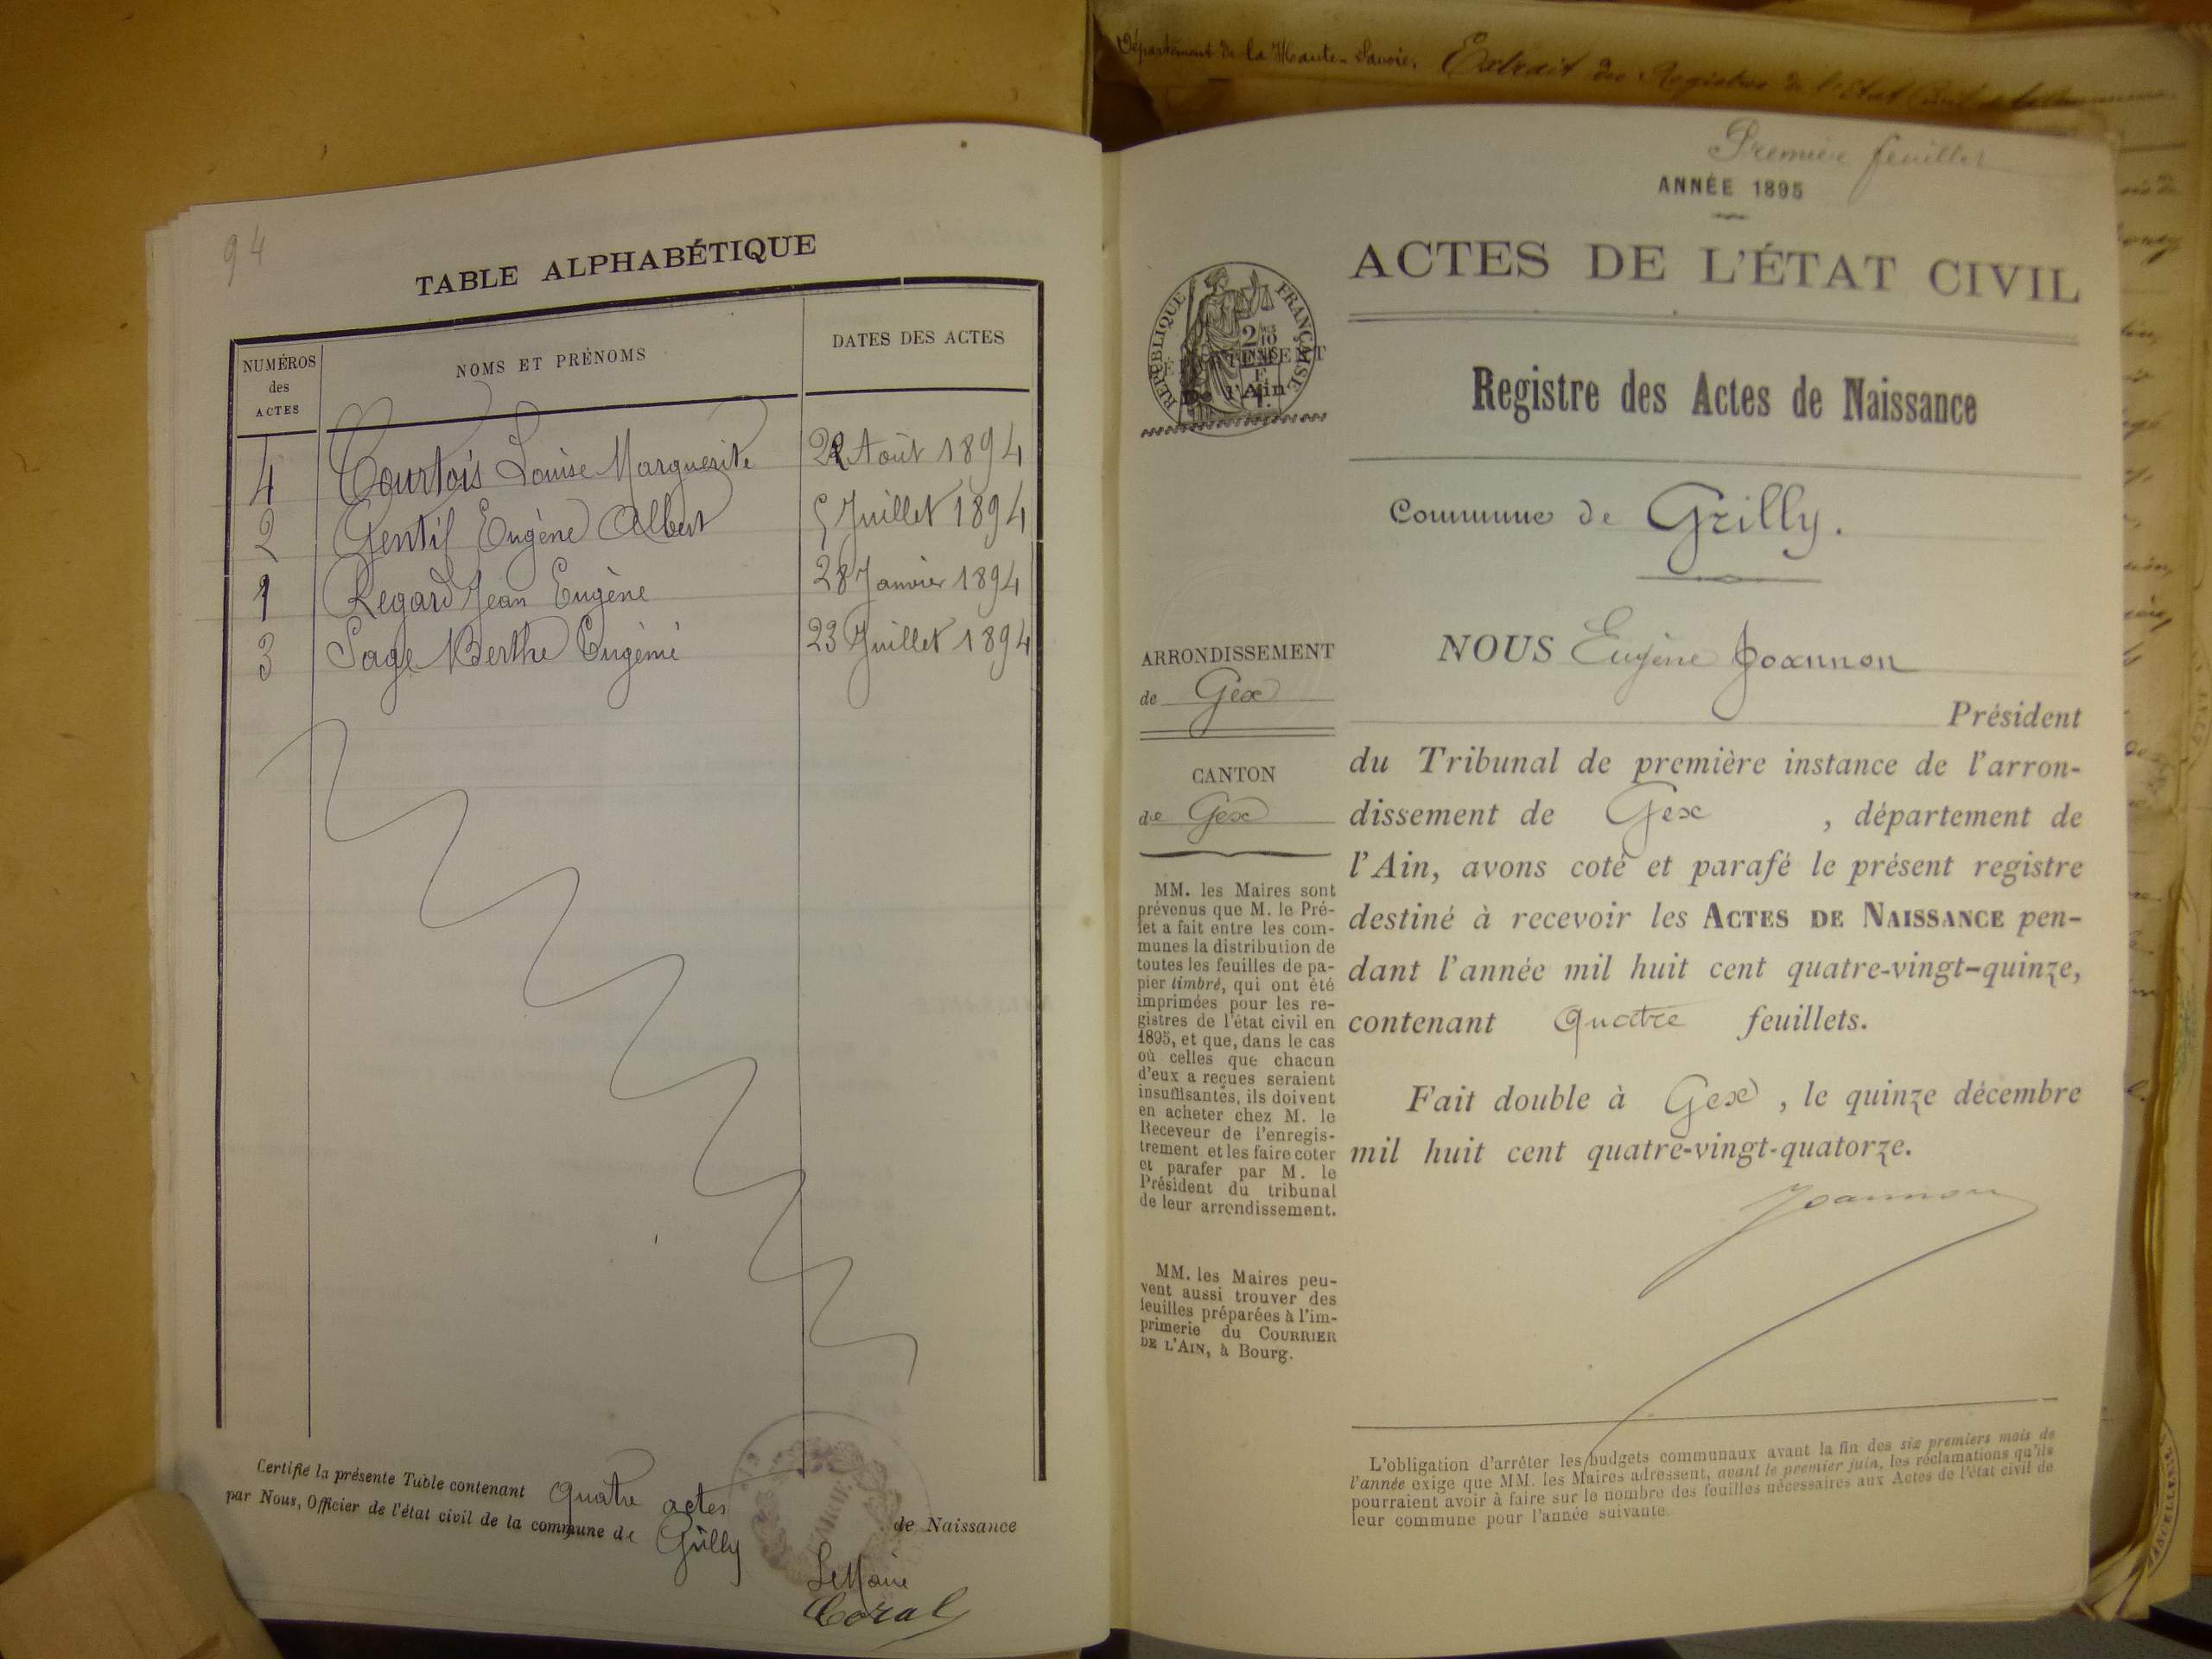 Département de la Haute-Savoie. Extrait des Registres de l'Etat Civil
94
TABLE ALPHABÉTIQUE
NUMÉROS
des
ACTES
NOMS ET PRÉNOMS
DATES DES ACTES
4 Courtois Louise Marguerite 22 Août 1894
2 Gentil Eugène Albert 5 Juillet 1894
1 Regard Jean Eugène 28 Janvier 1894
3 Sage Berthe Eugénie 23 Juillet 1894
Certifié la présente Table contenant quatre actes
de Naissance
par Nous, Officier de l'état civil de la commune de Grilly
Le Maire
Coral
Premier feuillet
ANNÉE 1895
ACTES DE L'ÉTAT CIVIL
RÉPUBLIQUE FRANÇAISE
De l'Ain
Registre des Actes de Naissance
Commune de Grilly.
ARRONDISSEMENT
de Gex
CANTON
de Gex
MM. les Maires sont
prévenus que M. le Pré-
fet a fait entre les com-
munes la distribution de
toutes les feuilles de pa-
pier timbré, qui ont été
imprimées pour les re-
gistres de l'état civil en
1895, et que, dans le cas
où celles que chacun
d'eux a reçues seraient
insuffisantes, ils doivent
en acheter chez M. le
Receveur de l'enregis-
trement et les faire coter
et parafer par M. le
Président du tribunal
de leur arrondissement.
MM. les Maires peu-
vent aussi trouver des
feuilles préparées à l'im-
primerie du COURRIER
DE L'AIN, à Bourg.
NOUS Eugène Joannon
Président
du Tribunal de première instance de l'arron-
dissement de Gex , département de
l'Ain, avons coté et parafé le présent registre
destiné à recevoir les ACTES DE NAISSANCE pen-
dant l'année mil huit cent quatre-vingt-quinze,
contenant quatre feuillets.
Fait double à Gex , le quinze décembre
mil huit cent quatre-vingt-quatorze.
Joannon
L'obligation d'arrêter les budgets communaux avant la fin des six premiers mois de
l'année exige que MM. les Maires adressent, avant le premier juin, les réclamations qu'ils
pourraient avoir à faire sur le nombre des feuilles nécessaires aux Actes de l'état civil de
leur commune pour l'année suivante.